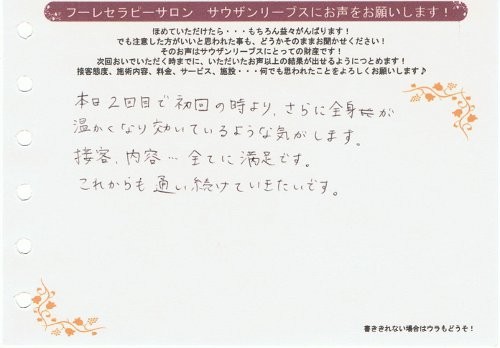 フーレセラピーサロン サウザンリーブスにお声をお願いします！
ほめていただけたら・・・もちろん益々がんばります！
でも注意した方がいいと思われた事も、どうかそのままお聞かせください！
そのお声はサウザンリーブスにとっての財産です！
次回おいでいただく時までに、いただいたお声以上の結果が出せるようにつとめます！
接客態度、施術内容、料金、サービス、施設・・・何でも思われたことをよろしくお願いします♪
本日2回目で初回の時より、さらに全身が
温かくなり効いているような気がします。
接客、内容…全てに満足です。
これからも通い続けていきたいです。
書ききれない場合はウラもどうぞ！